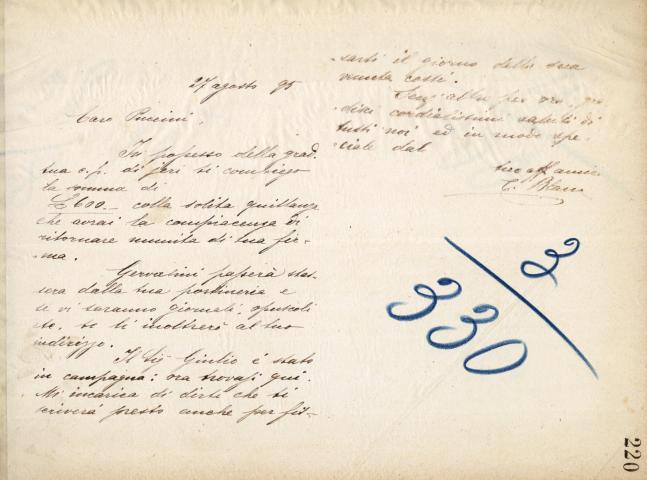 27 agosto 95
Caro Puccini,
In possesso della grad.
tua c.p. di jeri ti compiego
la somma di
£ 600.— colla solita quittanza
che avrai la compiacenza di
ritornare munita di tua fir-
ma.
Gervasini passerà stas-
sera dalla tua portineria e
se vi saranno giornali, opuscoli
etc. te li inoltrerò al tuo
indirizzo.
Il Sig. Giulio è stato
in campagna: ora trovasi qui.
Mi incarica di dirti che ti
scriverà presto anche per fis-
sarti il giorno della sua
venuta costì.
Senz'altro per ora, gra-
disci cordialissimi saluti di
tutti noi ed in modo spe-
ciale dal
tuo aff. amico
C. Blanc
330/2
220